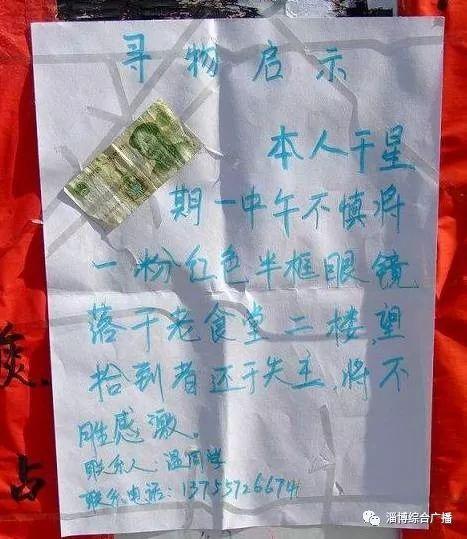 寻物启示
本人于星
期一中午不慎将
一粉红色半框眼镜
落于老食堂二楼,望
拾到者还于失主,将不
胜感激。
联系人:温同学
联系电话:13755726674
占
淄博综合广播